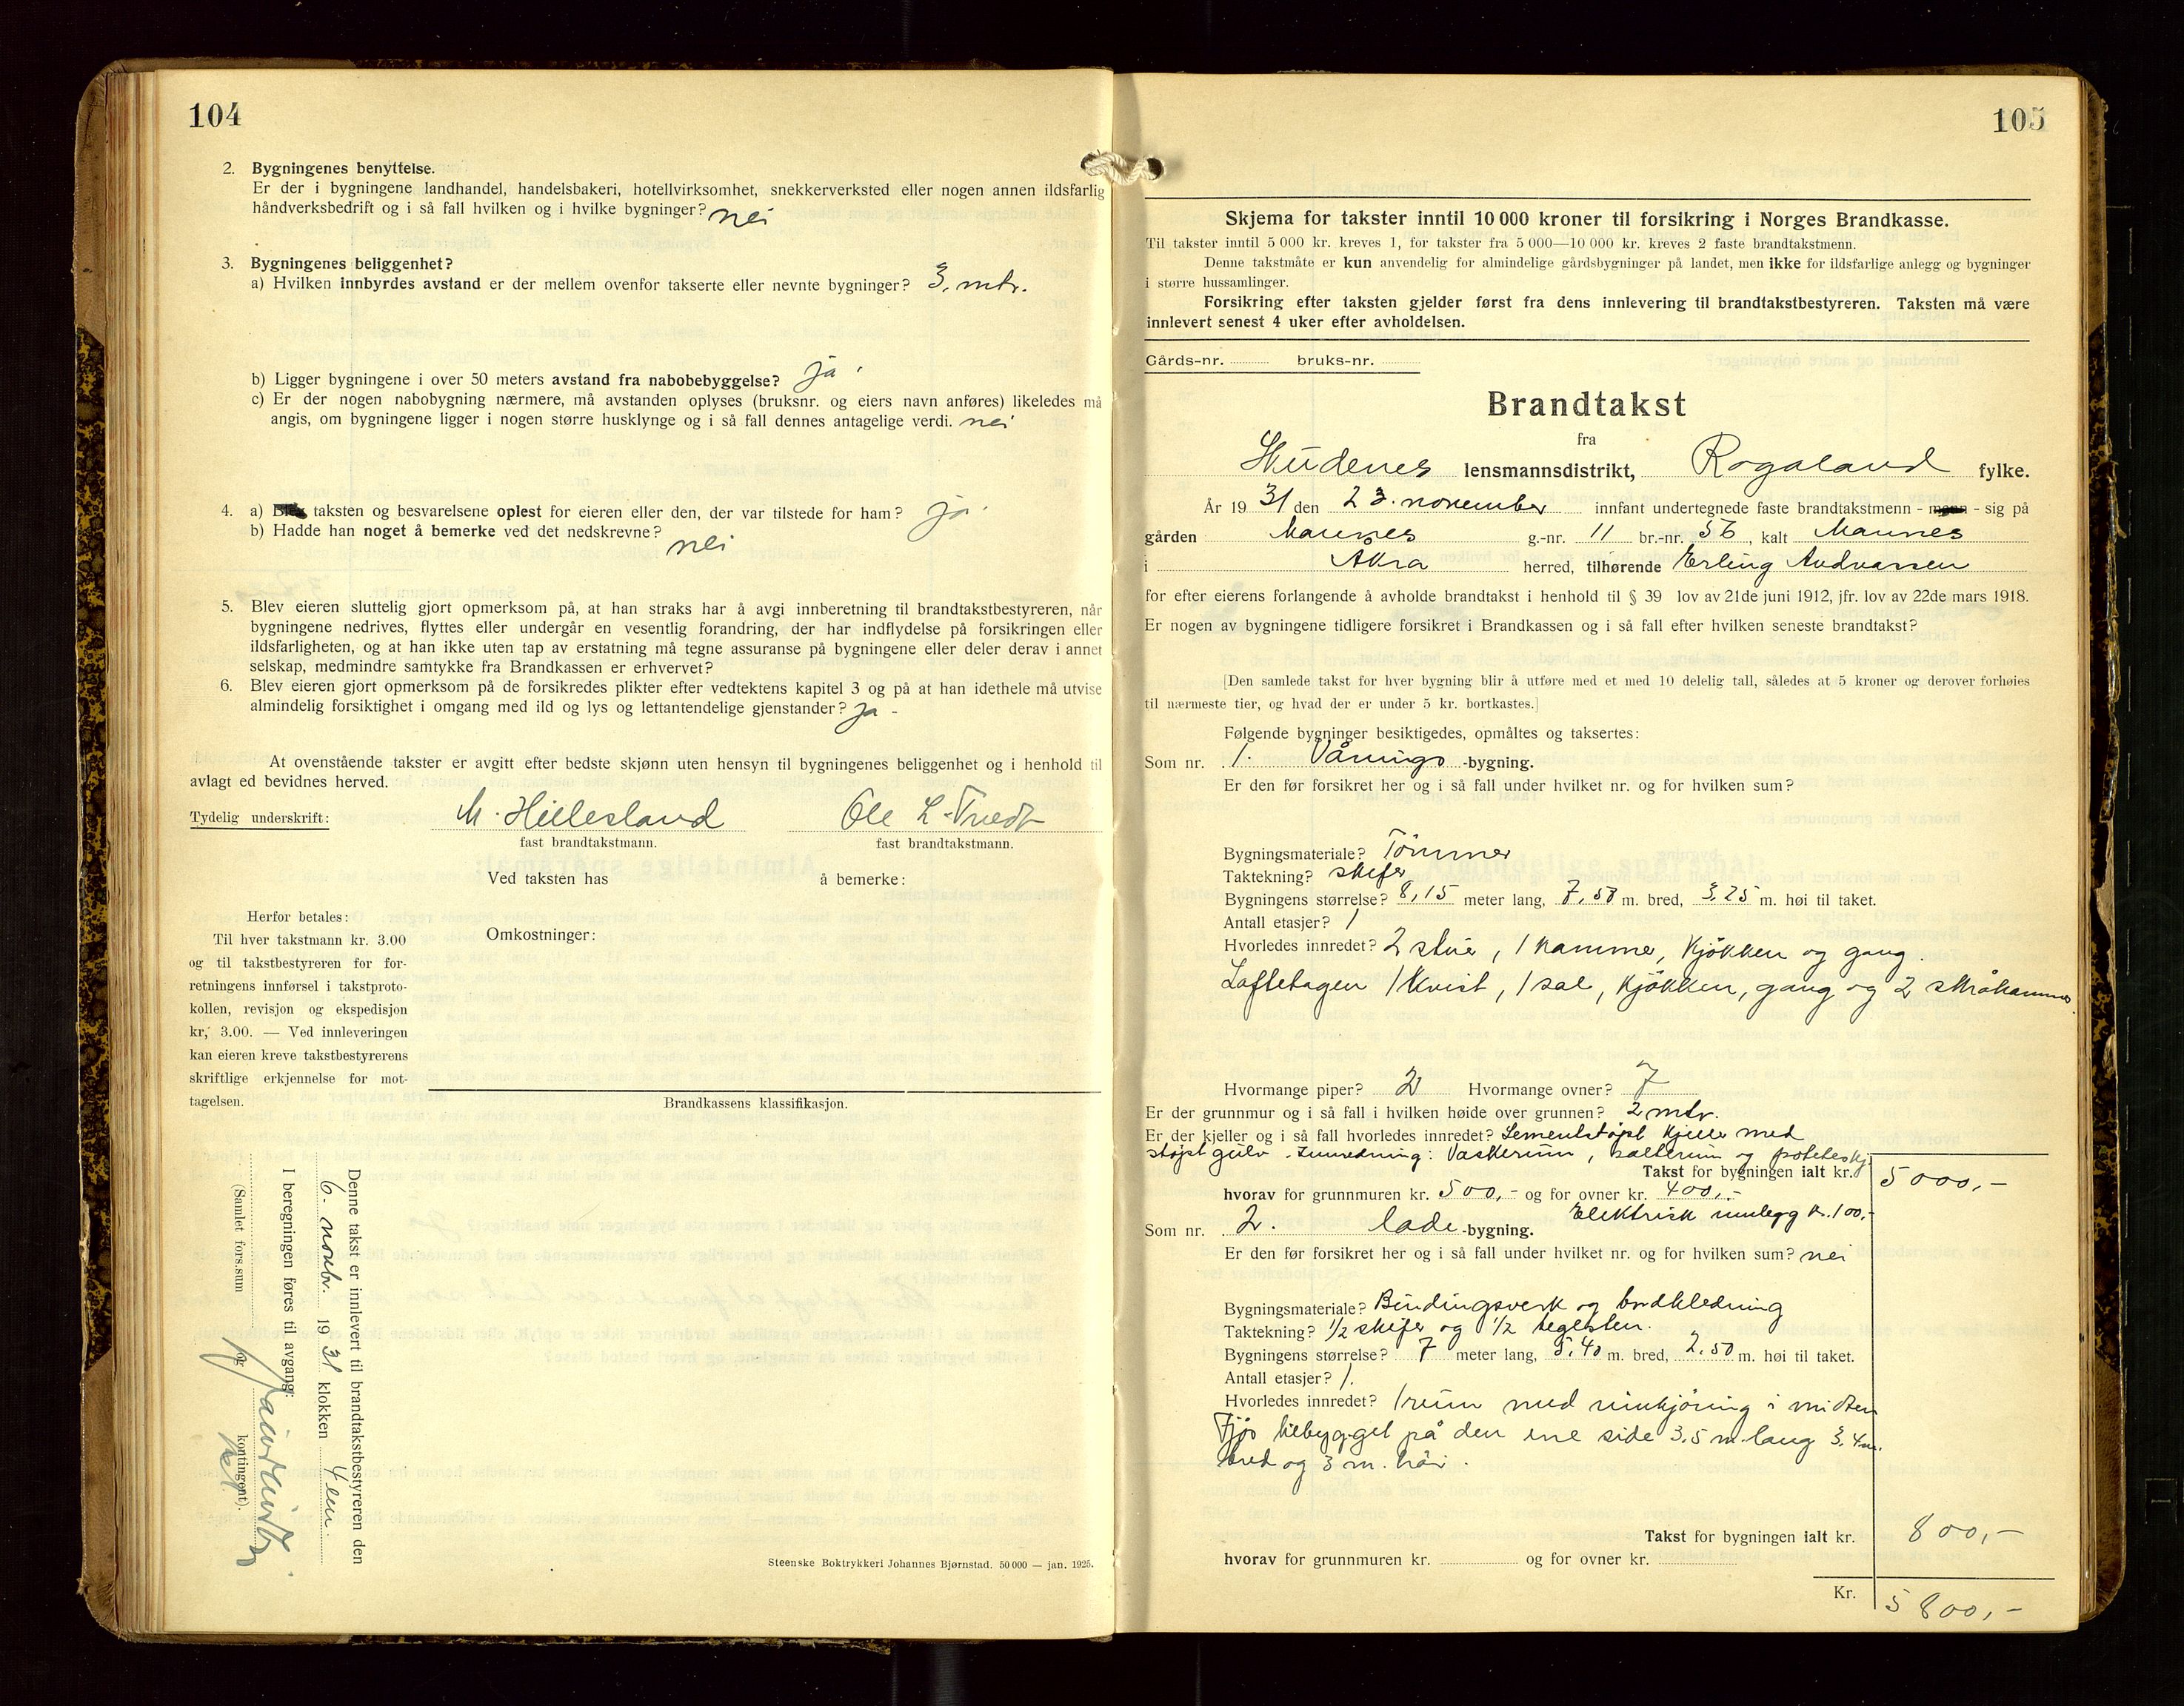 104
2. Bygningenes benyttelse.
Er der i bygningene landhandel, handelsbakeri, hotellvirksomhet, snekkerverksted eller nogen annen ildsfarlig
håndverksbedrift og i så fall hvilken og i hvilke bygninger? nei
3. Bygningenes beliggenhet?
a) Hvilken innbyrdes avstand er der mellem ovenfor takserte eller nevnte bygninger? 3. mtr.
b) Ligger bygningene i over 50 meters avstand fra nabobebyggelse? ja
c) Er der nogen nabobygning nærmere, må avstanden oplyses (bruksnr. og eiers navn anføres) likeledes må
angis, om bygningene ligger i nogen større husklynge og i så fall dennes antagelige verdi. nei
4. a) taksten og besvarelsene oplest for eieren eller den, der var tilstede for ham? ja
b) Hadde han noget å bemerke ved det nedskrevne? nei
5. Blev eieren sluttelig gjort opmerksom på, at han straks har å avgi innberetning til brandtakstbestyreren, når
bygningene nedrives, flyttes eller undergår en vesentlig forandring, der har indflydelse på forsikringen eller
ildsfarligheten, og at han ikke uten tap av erstatning må tegne assuranse på bygningene eller deler derav i annet
selskap, medmindre samtykke fra Brandkassen er erhvervet?
6. Blev eieren gjort opmerksom på de forsikredes plikter efter vedtektens kapitel 3 og på at han idethele må utvise
almindelig forsiktighet i omgang med ild og lys og lettantendelige gjenstander? ja -
At ovenstående takster er avgitt efter bedste skjønn uten hensyn til bygningenes beliggenhet og i henhold til
avlagt ed bevidnes herved.
Tydelig underskrift: M. Hillesland Ole L.
fast brandtakstmann. fast brandtakstmann.
Ved taksten has å bemerke:
Herfor betales:
Til hver takstmann kr. 3.00
og til takstbestyreren for for-
retningens innførsel i takstproto-
kollen, revisjon og ekspedisjon
kr, 3.00. — Ved innleveringen
kan eieren kreve takstbestyrerens
skriftlige erkjennelse for mot-
tagelsen.
Omkostninger:
Brandkassens klassifikasjon.
Denne takst er innlevert til brandtakstbestyreren den
6. novbr. 1931 klokken 4 em
I beregningen føres til avgang:
(Samlet fors.sum og kontingent).
Steenske Boktrykkeri Johannes Bjørnstad. 50 000 — jan. 1925.
105
Skjema for takster inntil 10 000 kroner til forsikring i Norges Brandkasse.
Til takster inntil 5 000 kr. kreves 1, for takster fra 5 000—10 000 kr. kreves 2 faste brandtakstmenn.
Denne takstmåte er kun anvendelig for almindelige gårdsbygninger på landet, men ikke for ildsfarlige anlegg og bygninger
i større hussamlinger.
Forsikring efter taksten gjelder først fra dens innlevering til brandtakstbestyreren. Taksten må være
innlevert senest 4 uker efter avholdelsen.
Gårds-nr. bruks-nr.
Brandtakst
fra
Skudenes lensmannsdistrikt, Rogaland fylke.
År 1931 den 23. november innfant undertegnede faste brandtakstmenn - - sig på
gården Maunes g.-nr. 11 br.-nr. 56, kalt Maunes
i Åkra herred, tilhørende Erling Andreassen
for efter eierens forlangende å avholde brandtakst i henhold til § 39 lov av 21de juni 1912, jfr. lov av 22de mars 1918.
Er nogen av bygningene tidligere forsikret i Brandkassen og i så fall efter hvilken seneste brandtakst?
[Den samlede takst for hver bygning blir å utføre med et med 10 delelig tall, således at 5 kroner og derover forhøies
til nærmeste tier, og hvad der er under 5 kr. bortkastes.]
Følgende bygninger besiktigedes, opmåltes og taksertes:
Som nr. 1. Vånings-bygning.
Er den før forsikret her og i så fall under hvilket nr. og for hvilken sum?
Bygningsmateriale? Tömmer
Taktekning? skifer
Bygningens størrelse? 8,15 meter lang, 7,50 m. bred, 3,25 m. høi til taket.
Antall etasjer? 1
Hvorledes innredet? 2 stuer, 1 kammer, kjökken og gang.
Loftetagen 1 kvist, 1 sal, kjökken, gang og 2 skråkammer
Hvormange piper? 2 Hvormange ovner? 7
Er der grunnmur og i så fall i hvilken høide over grunnen? 2 mtr.
Er der kjeller og i så fall hvorledes innredet? Sementstöpt kjeller med
stöpt gulv. Innredning: Vaskerum, salterum og poteteskj.
Takst for bygningen ialt kr. 5000,-
hvorav for grunnmuren kr. 500,- og for ovner kr. 400,-
Elektrisk innlegg kr. 100,-
Som nr. 2. lade-bygning.
Er den før forsikret her og i så fall under hvilket nr. og for hvilken sum? nei
Bygningsmateriale? Bindingsverk og bordkledning
Taktekning? 1/2 skifer og 1/2 teglsten.
Bygningens størrelse? 7 meter lang, 5,40 m. bred, 2.50 m. høi til taket.
Antall etasjer? 1.
Hvorledes innredet? 1 rum med innkjöring i midten
Fjös tilebygget på den ene side 3.5 m. lang 3.4 m.
bred og 3 m. höi.
Takst for bygningen ialt kr. 800,-
hvorav for grunnmuren kr. og for ovner kr.
Kr. 5800,-